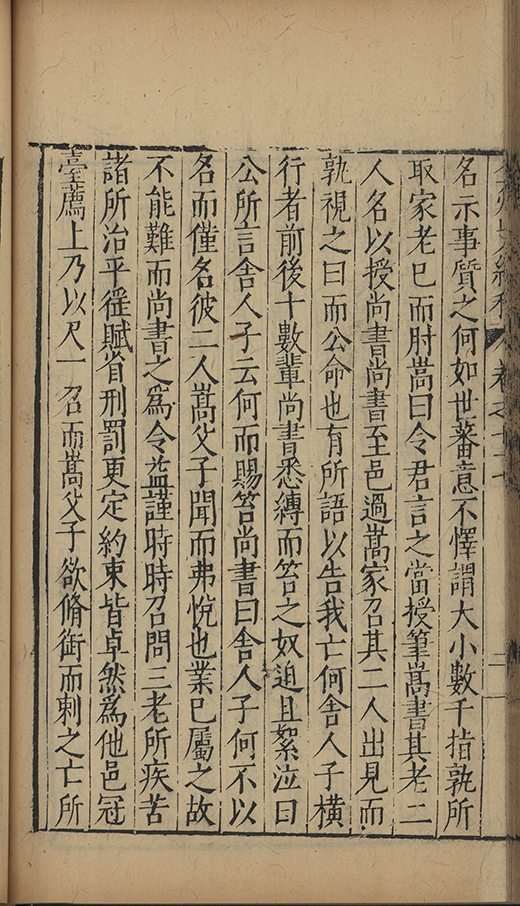 人續稿 卷之
名示事質之何如世蕃意不懌謂大小數千指孰所
取家老巳而肘嵩曰令君言之當授筆嵩書其老二
人名以授尚書尚書至邑過嵩家召其二人出見而
孰視之曰而公命也有所語以告我亡何舍人子橫
行者前後十數輩尚書悉縛而笞之奴迫且絮泣曰
公所言舍人子云何而賜笞尚書曰舍人子何不以
名而僅名彼二人嵩父子聞而弗悅也業巳屬之故
不能難而尚書之爲令益謹時時召問三老所疾苦
諸所治平徭賦省刑罰更定約束皆卓然爲他邑冠
臺薦上乃以尺一召而嵩父子欲脩銜而刺之亡所